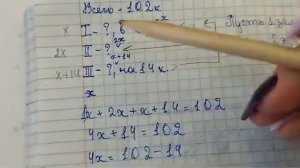 Всего - 102 к
x I - ?, в
2x
2x II - ?
x+14
x+14 III - ?, на 14 к >
x
x + 2x + x + 14 = 102
4x + 14 = 102
4x = 102 - 14
Пусть